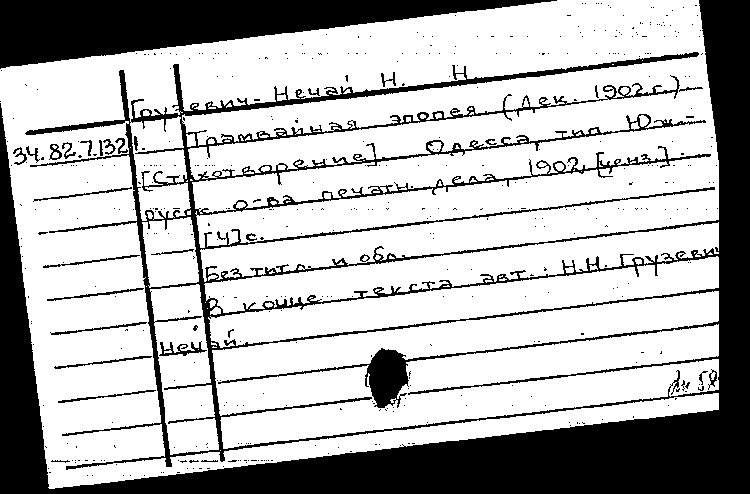 Грузевич-Нечай Н. Н.
34.82.7.132 1. Трамвайная эпопея. (Дек. 1902 г.)
[Стихотворение]. Одесса, тип. Юж.-
русск. о-ва печатн. дела, 1902, [ценз.].
[4]с.
Без титл. и обл.
В конце текста авт.: Н.Н. Грузевич
Нечай.
58